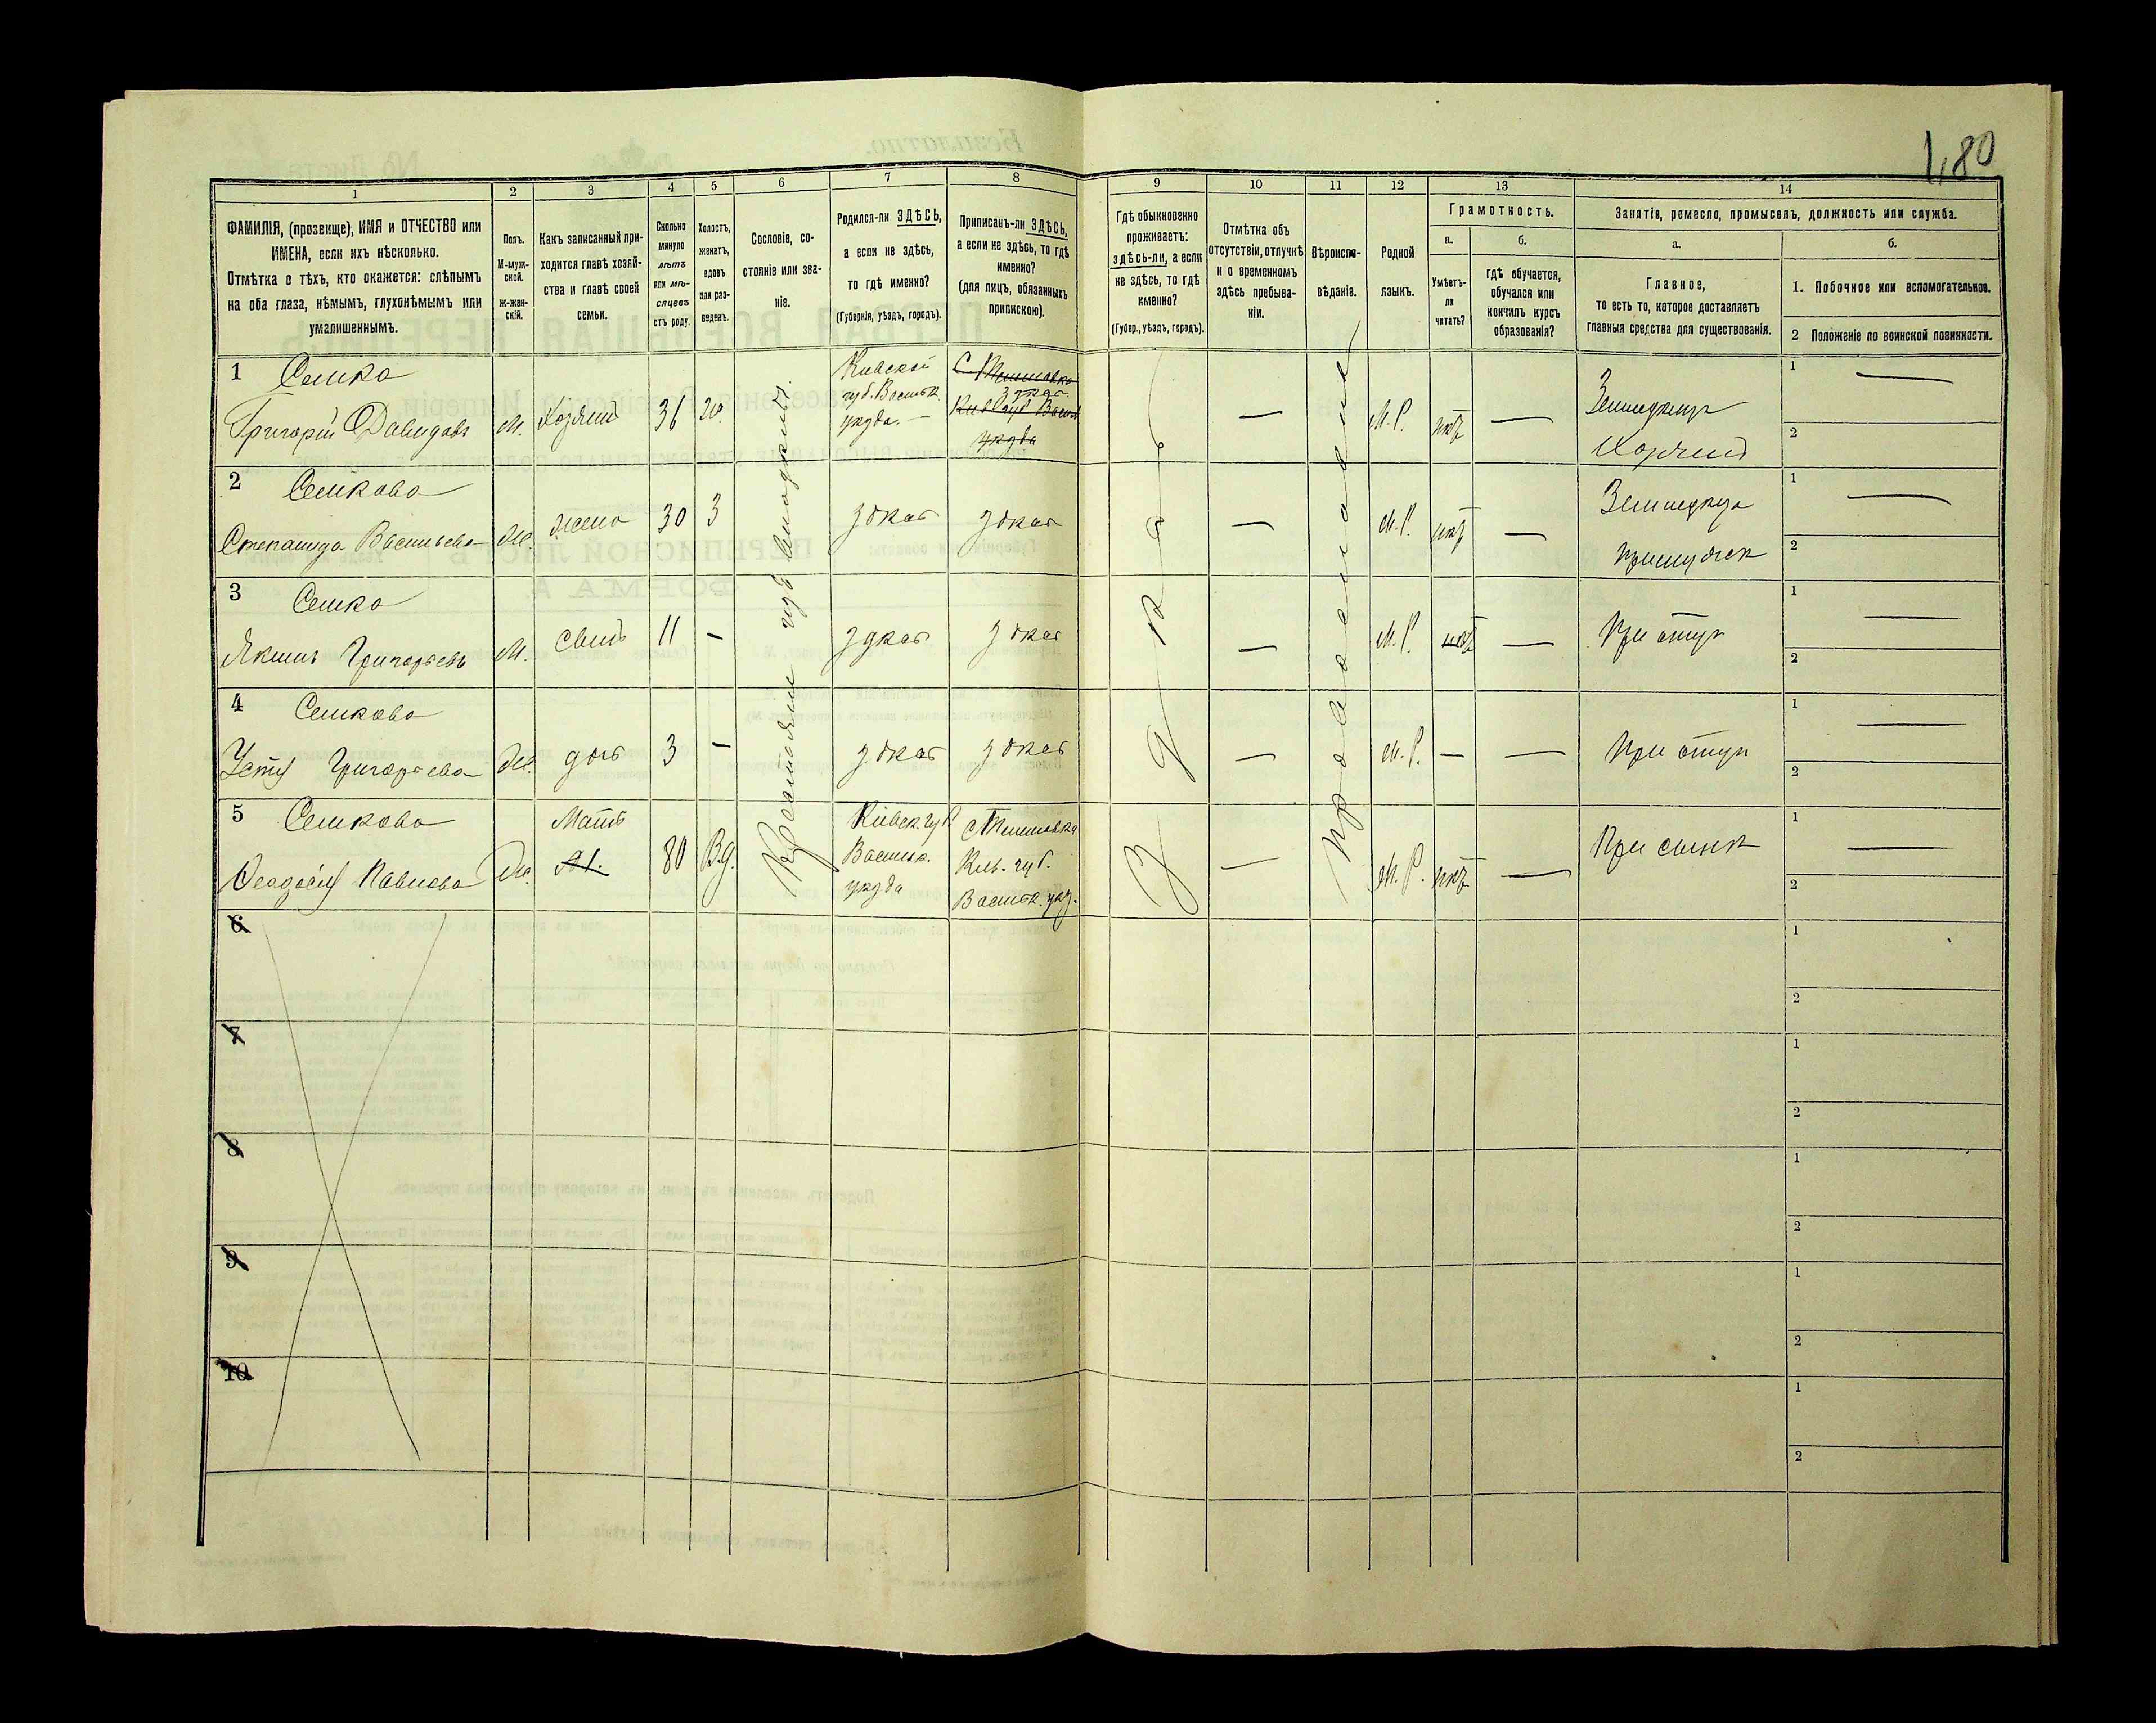 1,80
1
2
3
4
5
6
7
8
9
10
11
12
13
14
ФАМИЛІЯ, (прозвище), ИМЯ и ОТЧЕСТВО или
ИМЕНА, если ихъ нѣсколько.
Отмѣтка о тѣхъ, кто окажется: слѣпымъ
на оба глаза, нѣмымъ, глухонѣмымъ или
умалишеннымъ.
Полъ.
М-муж-
ской.
ж-жен-
скій.
Какъ записанный при-
ходится главѣ хозяй-
ства и главѣ своей
семьи.
Сколько
минуло
лѣтъ
или мѣ-
сяцевъ
отъ роду.
Холостъ,
женатъ,
вдовъ
или раз-
веденъ.
Сословіе, со-
стояніе или зва-
ніе.
Родился-ли ЗДѢСЬ,
а если не здѣсь,
то гдѣ именно?
(Губернія, уѣздъ, городъ).
Приписанъ-ли ЗДѢСЬ,
а если не здѣсь, то гдѣ
именно?
(для лицъ, обязанныхъ
припискою).
Гдѣ обыкновенно
проживаетъ:
здѣсь-ли, а если
не здѣсь, то гдѣ
именно?
(Губер., уѣздъ, городъ).
Отмѣтка объ
отсутствіи, отлучкѣ
и о временномъ
здѣсь пребыва-
ніи.
Вѣроиспо-
вѣданіе.
Родной
языкъ.
Грамотность.
а.
Умѣетъ-
ли
читать?
б.
гдѣ обучается,
обучался или
кончилъ курсъ
образованія?
Занятія, ремесло, промыселъ, должность или служба.
а.
Главное,
то есть то, которое доставляетъ
главныя средства для существованія.
б.
1. Побочное или вспомогательное.
2 Положеніе по воинской повинности.
1 Семко
Григорій Давидовъ
М.
Хозяинъ
36
Кіевской
губ. Васильк.
уѣзда. —
Здѣсь
—
М. Р.
нѣтъ
—
Земледѣлецъ
Хозяинъ
1 —
2
2 Семкова
Степанида Васильева
Ж.
жена
30
З
здѣсь
здѣсь
—
М. Р.
нѣтъ
—
Земледѣліе
1 —
2
3 Семко
Якимъ Григорьевъ
М.
сынъ
11
—
здѣсь
здѣсь
—
М. Р.
нѣтъ
—
При отцѣ
1 —
2
4 Семкова
Григорьева
Ж.
дочь
3
—
здѣсь
здѣсь
—
М. Р.
—
—
При отцѣ
1 —
2
5 Семкова
Феодосія Павлова
Ж.
Мать
80
Вд.
Кіевск. губ
Васильк.
уѣзда
Кіев. губ.
Васильк. уѣз.
—
М. Р.
нѣтъ
—
При сынѣ
1 —
2
Крестьяне изъ владѣльч.
здѣсь
православные
6
1
2
7
1
2
8
1
2
9
1
2
10
1
2